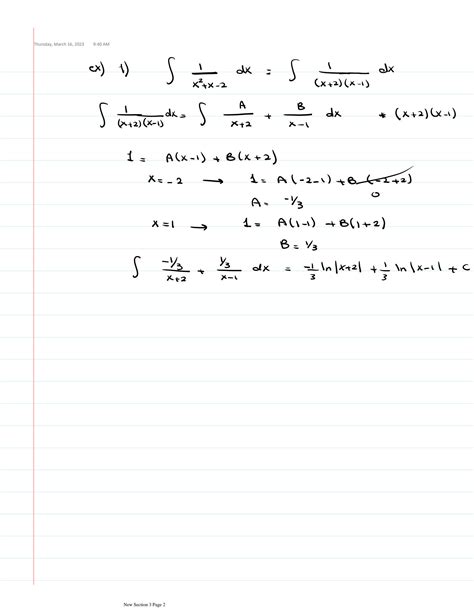 Thursday, March 16, 2023 9:40 AM
ex) 1) ∫ 1/(x²+x-2) dx = ∫ 1/((x+2)(x-1)) dx
∫ 1/((x+2)(x-1)) dx = ∫ A/(x+2) + B/(x-1) dx * (x+2)(x-1)
1 = A(x-1) + B(x+2)
x = -2 → 1 = A(-2-1) + B(-2+2)
0
A = -1/3
x = 1 → 1 = A(1-1) + B(1+2)
B = 1/3
∫ (-1/3)/(x+2) + (1/3)/(x-1) dx = -1/3 ln|x+2| + 1/3 ln|x-1| + C
New Section 3 Page 2